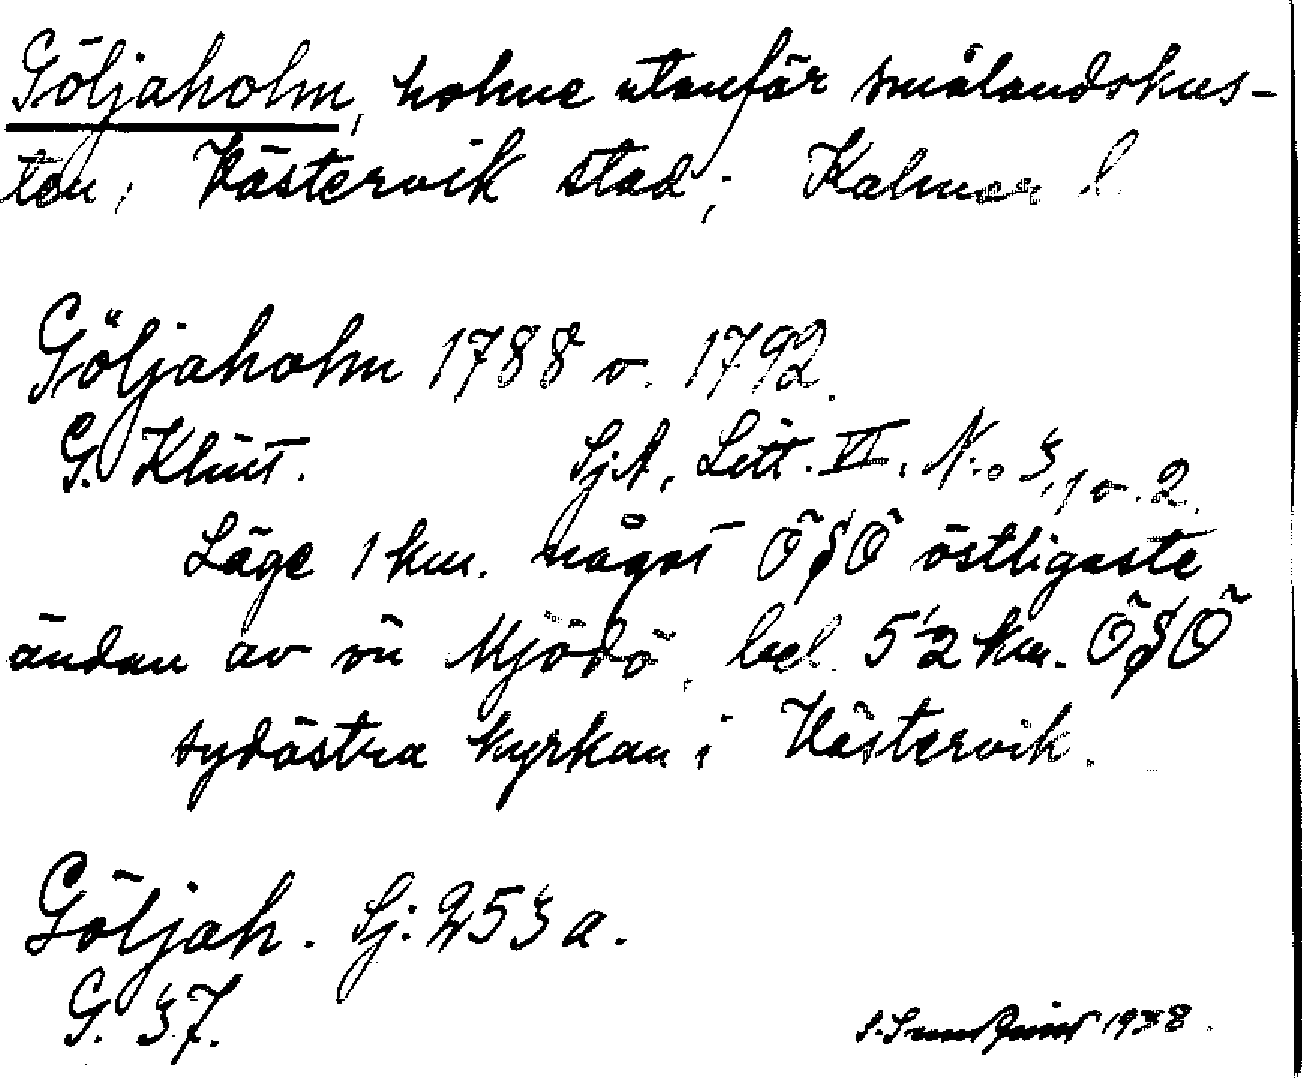 Göljaholm, holme utanför smålandskus-
ten; Västervik stad; Kalmar l.
Göljaholm 1788 o. 1792.
G. Klint. SjA, Litt. VI, N:o 3, 1 o. 2.
Läge 1 km. något ÖSÖ östligaste
ändan av ön Mjödö, bel. 5 1/2 km. ÖSÖ
sydöstra kyrkan i Västervik.
Göljah. Sj: 253 a.
G. 37.
1938.